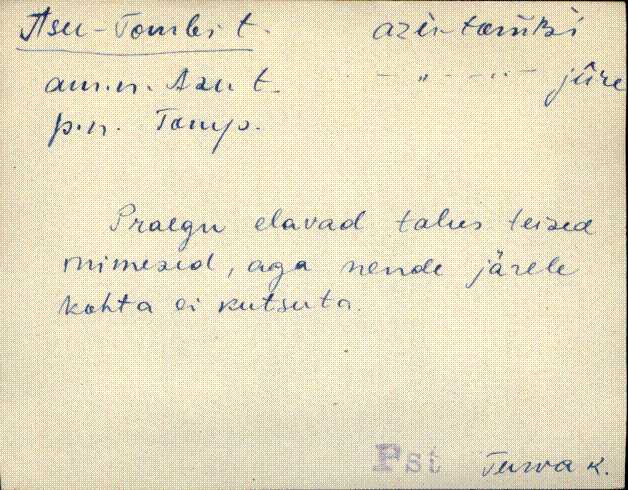 Asu-Tombi t. azu-tom̀bi
am.n. Asu t. – " – – " – jüre
p.n. Tomp.
Praegu elavad talus teised
inimesed, aga nende järele
kohta ei kutsuta.
Pst Turva k.